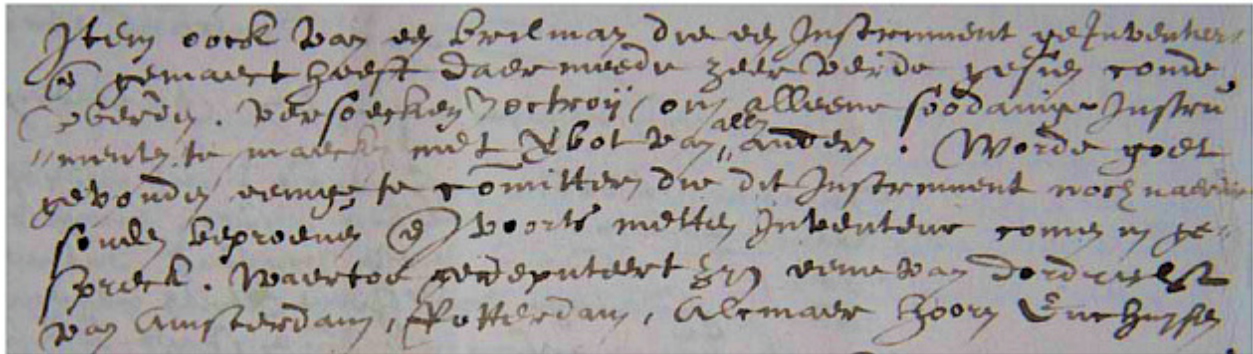 Item oock van een brilman die een Instrument geInventeert
en gemaect heeft daermeede zeer verde gesien conde
werden. versoecken octroij, om alleene soodanige Instru
menten te maecken met van allen anderen. Worde goet
gevonden eenige te comitteren die dit Instrument noch naerder
souden beproeven en voorts metten Inventeur comen in ge-
spreck. Waertoe gedeputeert zijn eene van dordrecht
van Amsterdam, Rotterdam, Alcmaer hoorn Enchuysen